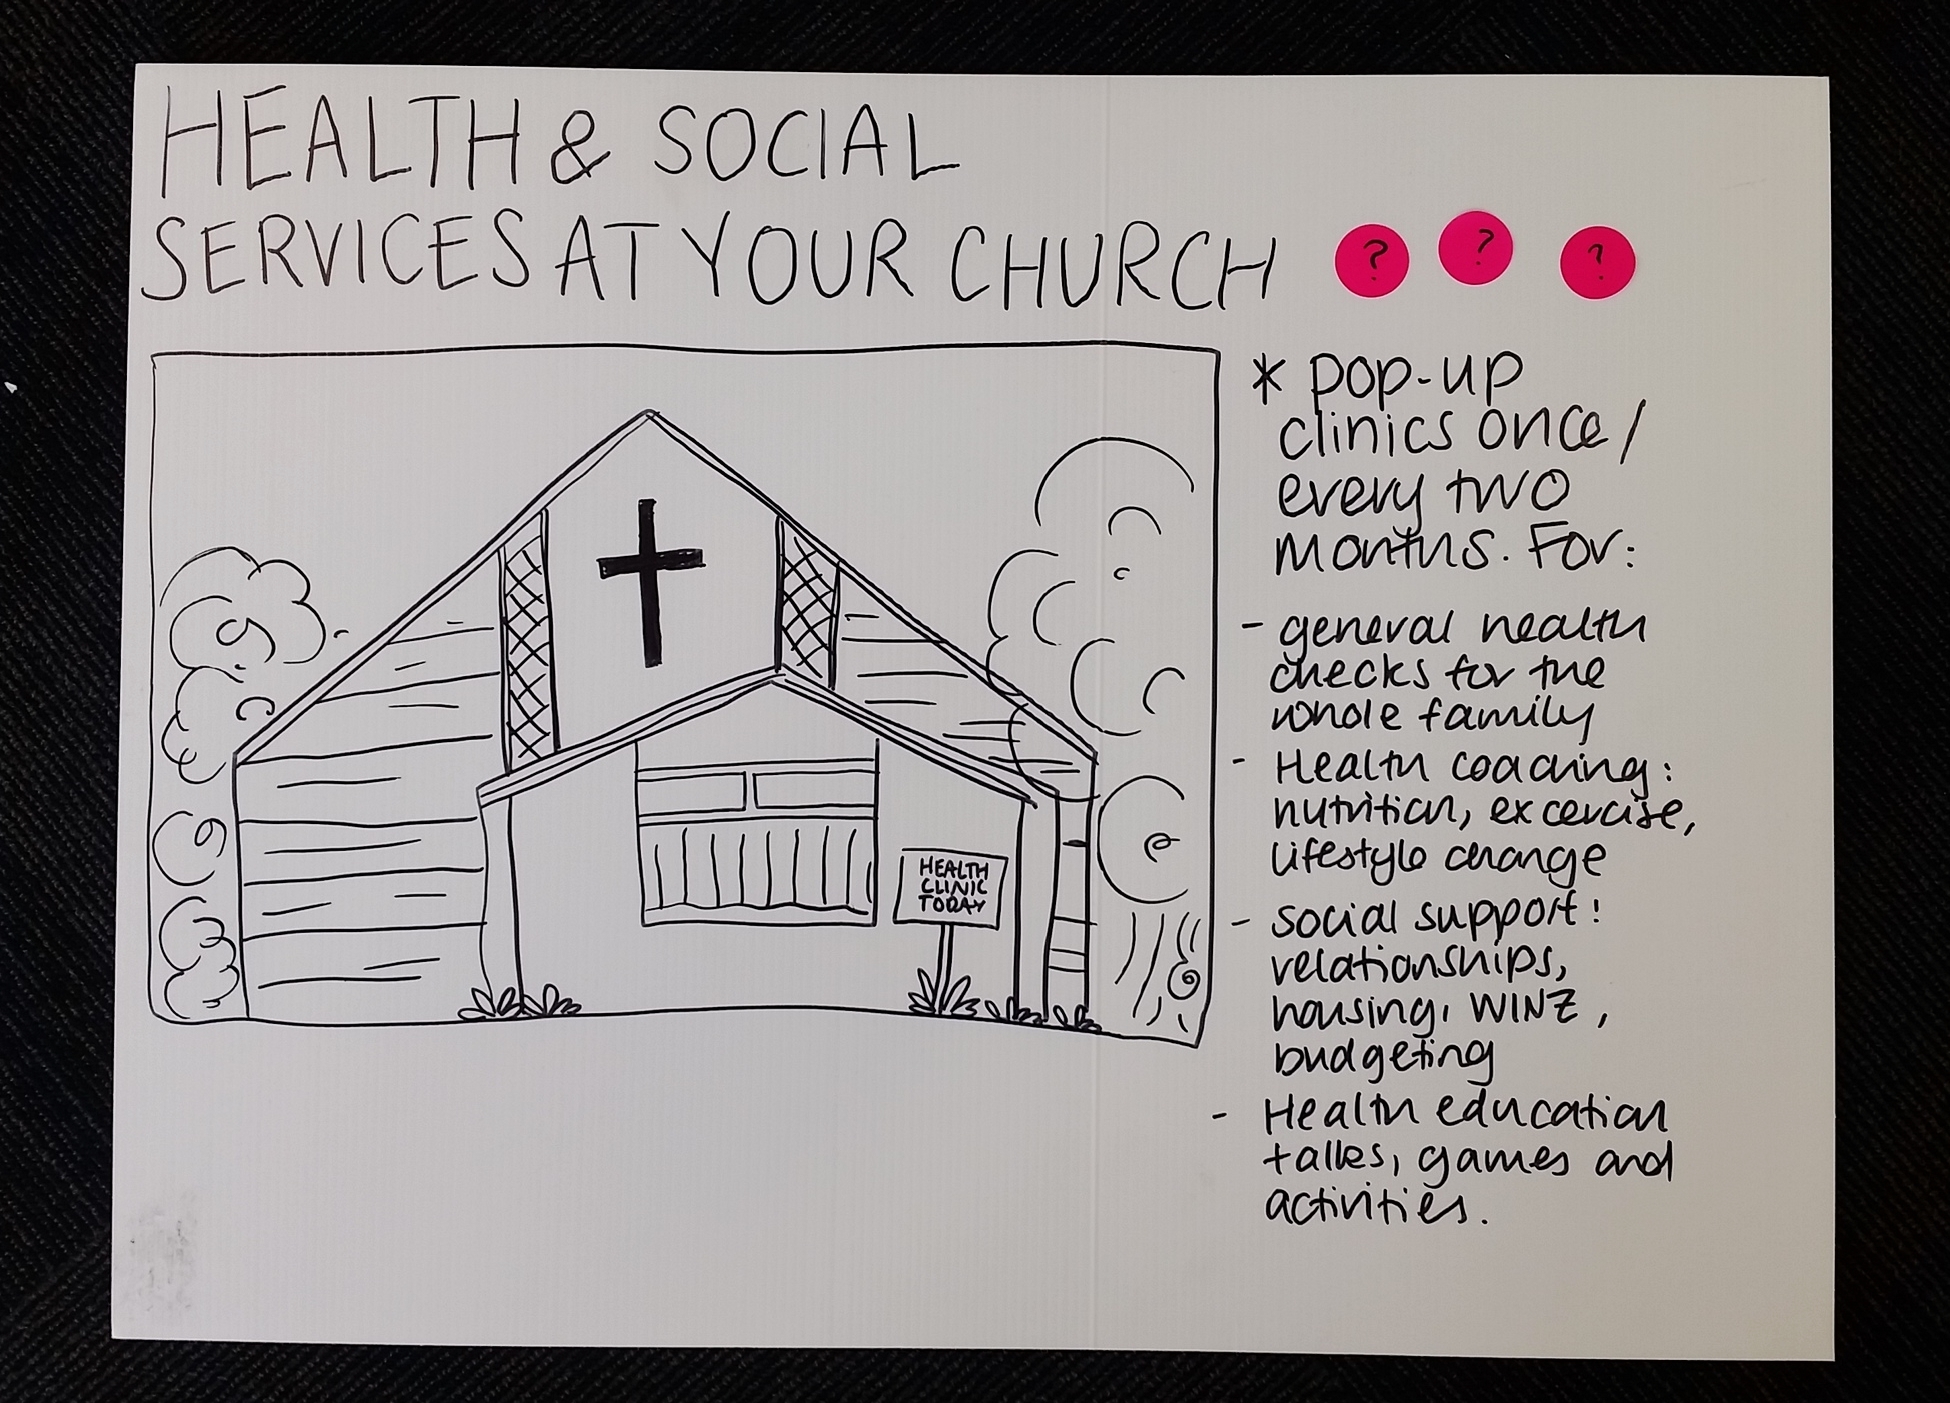 HEALTH & SOCIAL
SERVICES AT YOUR CHURCH
? ? ?
* pop-up
clinics once/
every two
months. For:
- general health
checks for the
whole family
- Health coaching:
nutrition, excercise,
lifestyle change
- social support:
relationships,
housing, WINZ,
budgeting
- Health education
talks, games and
activities.
HEALTH
CLINIC
TODAY